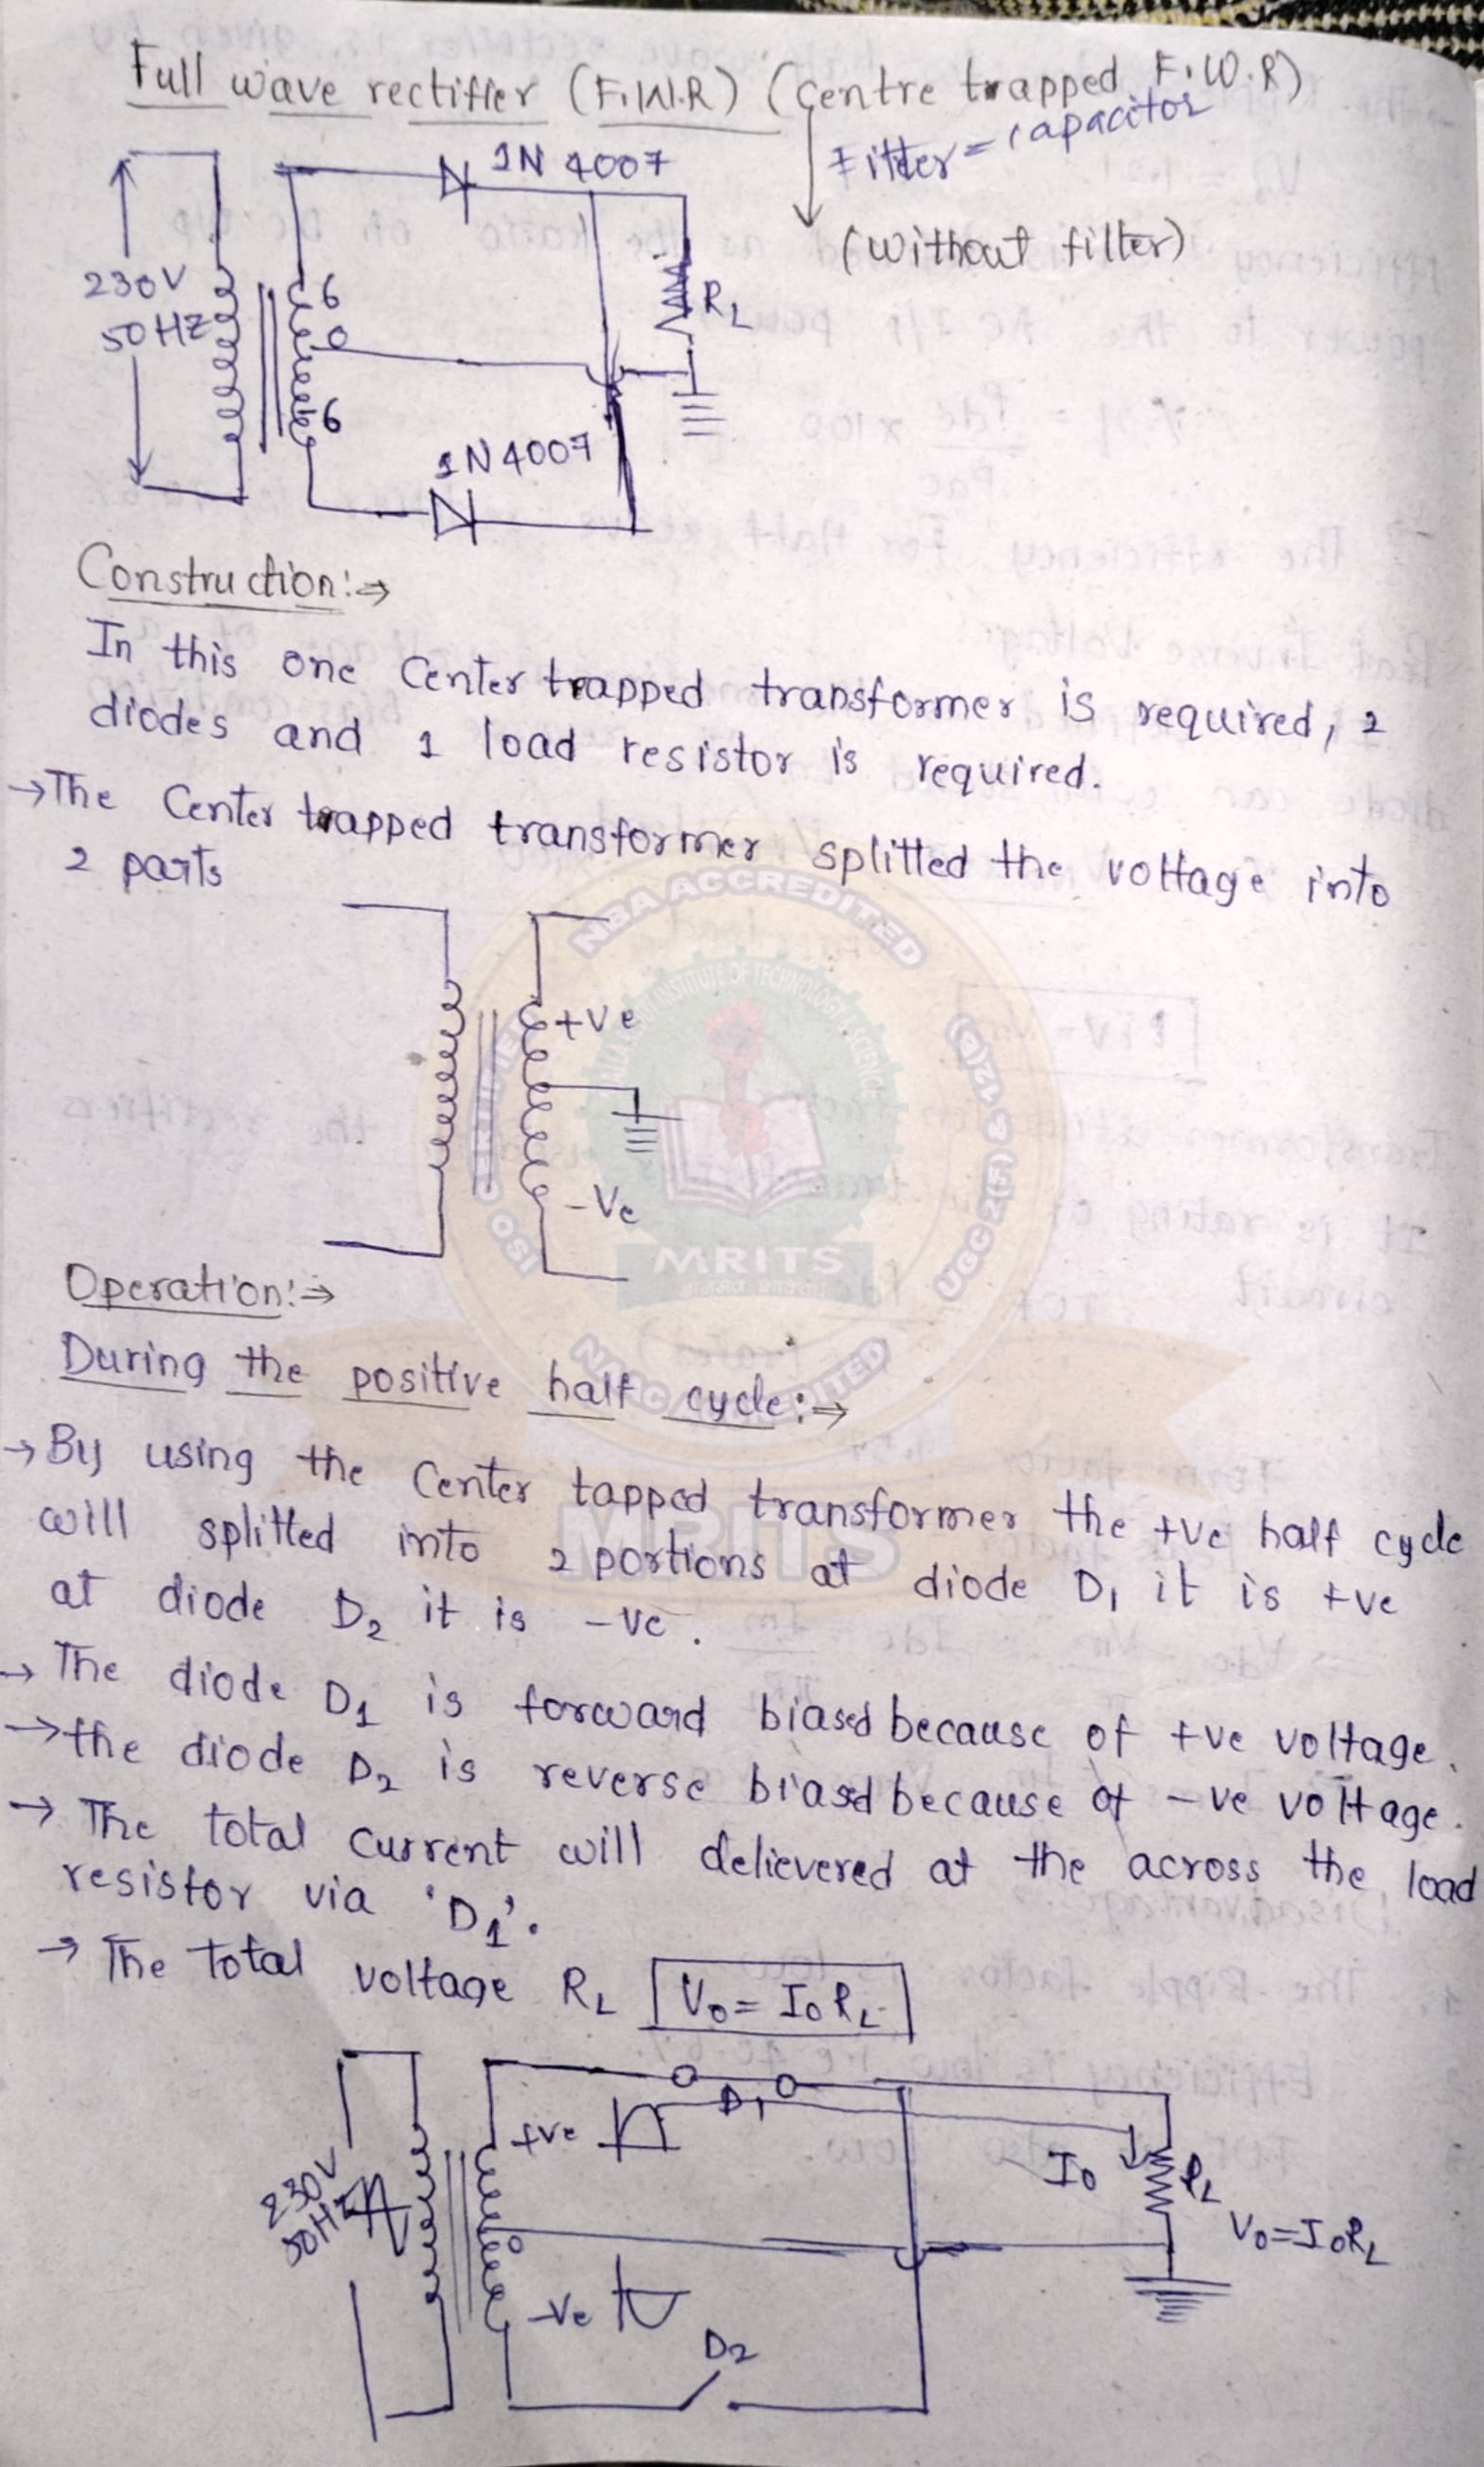 Full wave rectifier (F.W.R) (Centre trapped F.W.R)
Filter = capacitor
1N 4007
(without filter)
230V
50HZ
6
0
6
RL
1N4007
Construction:⇒
In this one Center trapped transformer is required, 2
diodes and 1 load resistor is required.
→The Center trapped transformer splitted the voltage into
2 parts
NBA ACCREDITED
+Ve
UGC 2(F) & 12(B)
-Ve
MRITS
Operation:⇒
NAAC ACCREDITED
During the positive half cycle:⇒
→By using the Center tapped transformer the +ve half cycle
MRITS
will splitted into 2 portions at diode D1 it is +ve
at diode D2 it is -ve.
→ The diode D1 is forward biased because of +ve voltage.
→the diode D2 is reverse biased because of -ve voltage.
→ The total current will delievered at the across the load
resistor via 'D1'.
→ The total voltage RL V0 = I0 RL
D1
+ve
230V
50HZ
I0
RL
V0=I0RL
0
-Ve
D2